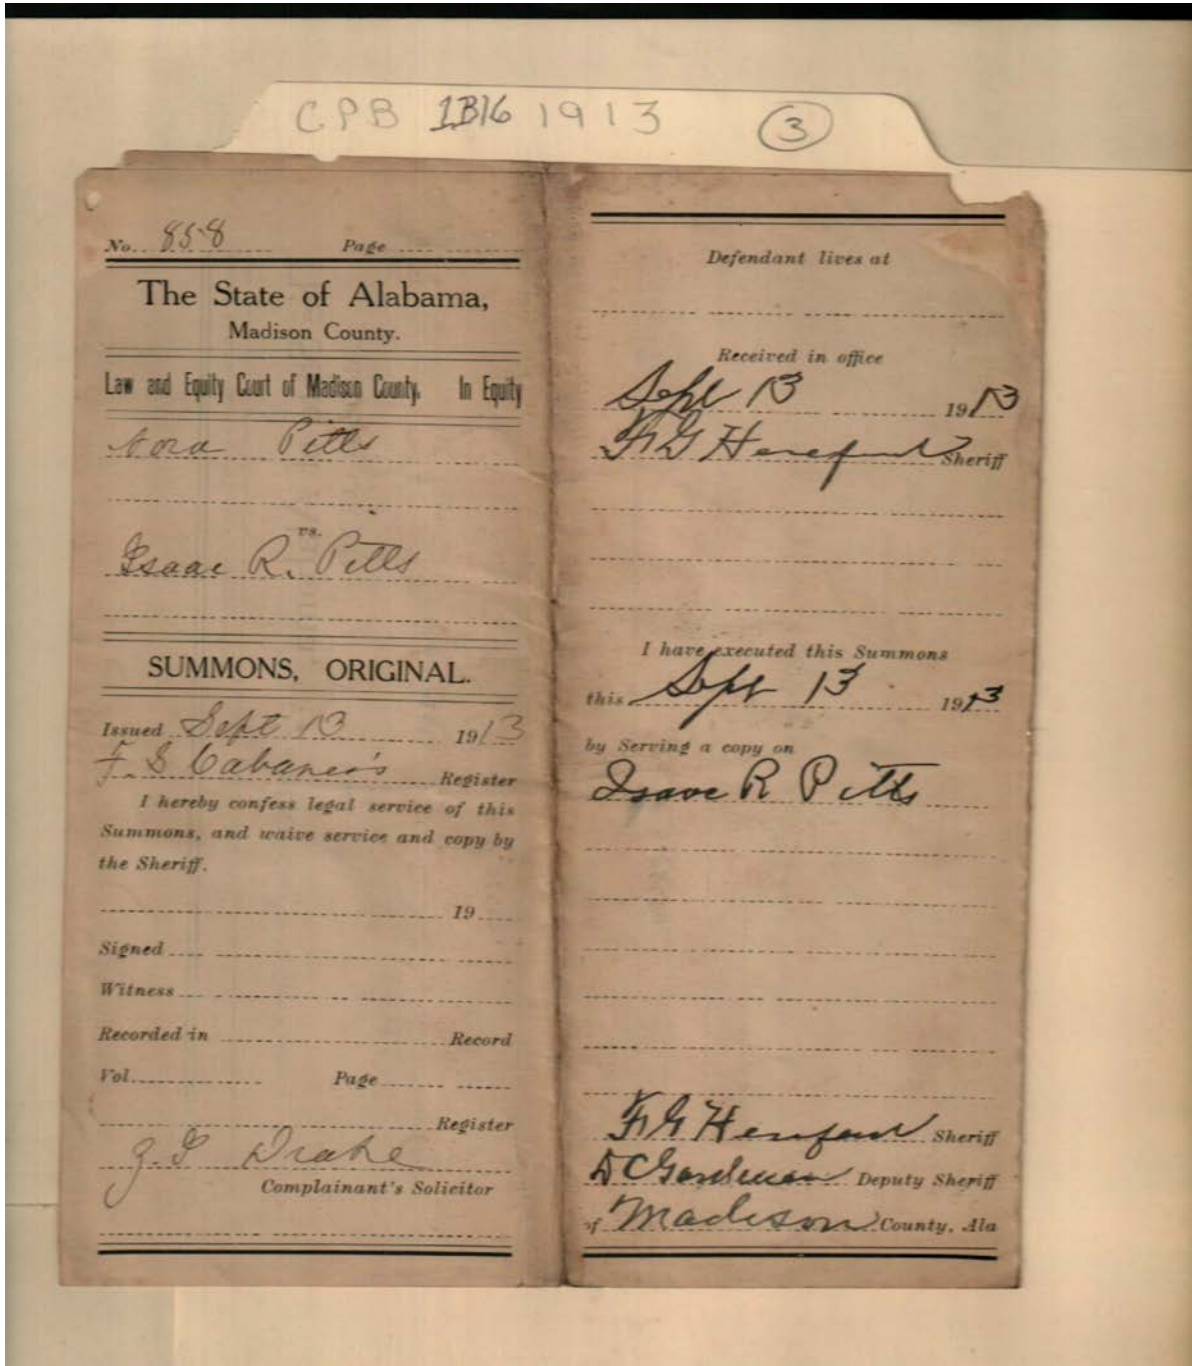 CPB 1B16 1913 3
No. 858 Page
The State of Alabama,
Madison County.
Law and Equity Court of Madison County. In Equity
Nora Pitts
vs.
Isaac R. Pitts
SUMMONS, ORIGINAL.
Issued Sept 13 1913
F. S Cabaneis Register
I hereby confess legal service of this
Summons, and waive service and copy by
the Sheriff.
19
Signed
Witness
Recorded in Record
Vol. Page
Register
Drake
Complainant's Solicitor
Defendant lives at
Received in office
Sept 13 1913
F G Hereford Sheriff
I have executed this Summons
this Sept 13 1913
by Serving a copy on
Isaac R Pitts
F G Hereford Sheriff
D C Deputy Sheriff
of Madison County, Ala